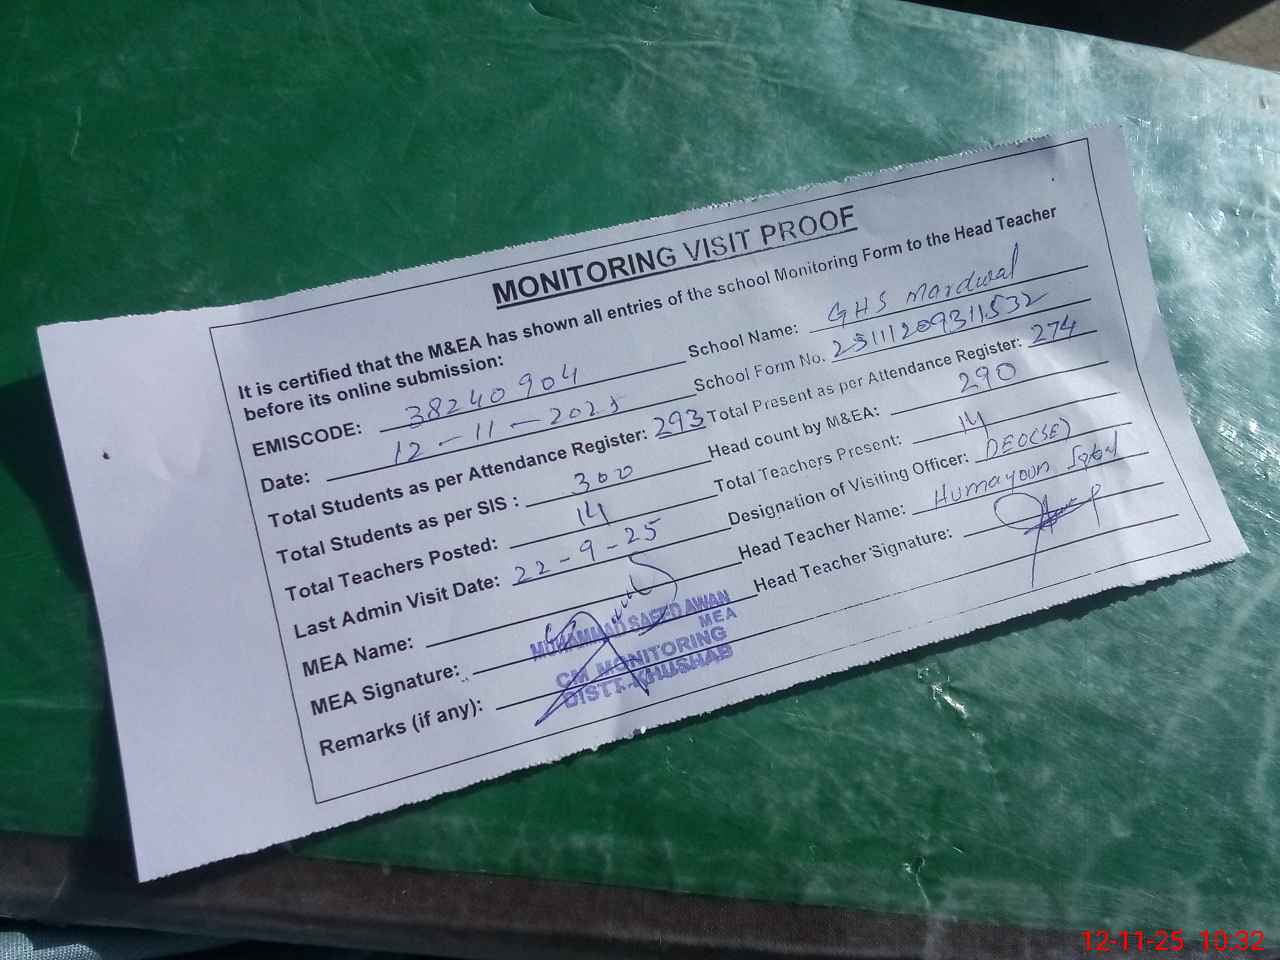 MONITORING VISIT PROOF
It is certified that the M&EA has shown all entries of the school Monitoring Form to the Head Teacher
before its online submission:
EMISCODE: 38240904 School Name: GHS Mardwal
Date: 12-11-2025 School Form No. 25111209311532
Total Students as per Attendance Register: 293 Total Present as per Attendance Register: 274
Total Students as per SIS : 300 Head count by M&EA: 290
Total Teachers Posted: 14 Total Teachers Present: 14
Last Admin Visit Date: 22-9-25 Designation of Visiting Officer: DEO(SE)
MEA Name: Head Teacher Name: Humayoun Iqbal
MEA Signature: Head Teacher Signature:
MUHAMMAD SAEED AWAN
MEA
Remarks (if any):
CM MONITORING
DISTT-KHUSHAB
12-11-25 10:32